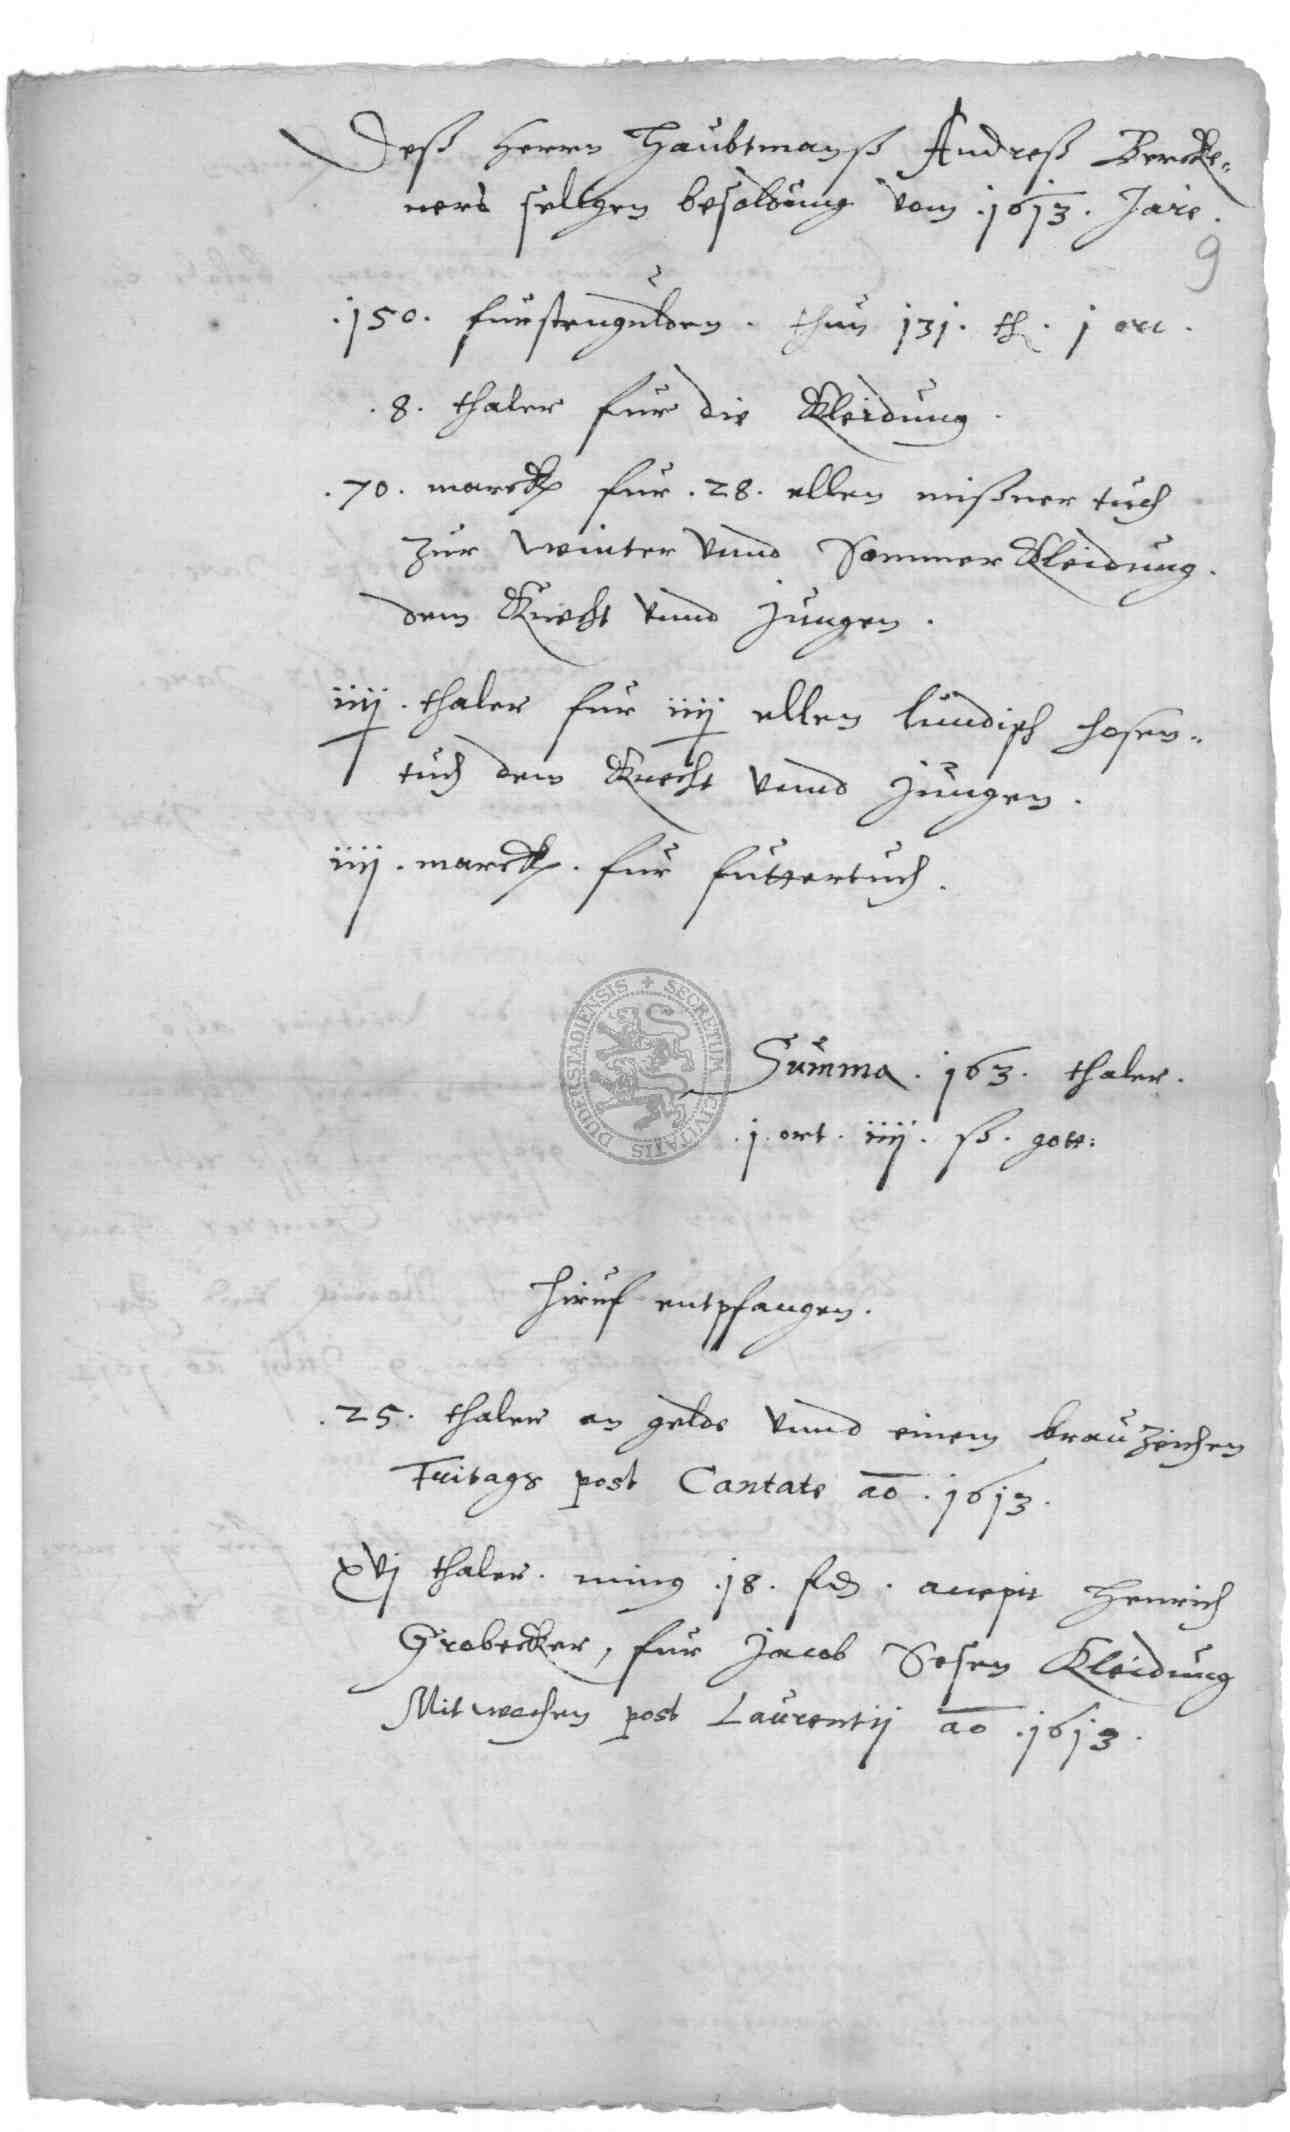 Deß Herrn Haubtmanß Andreß Bercke-
ners seligen besoldung vom .1613. Jare.
9
.150. furstengulden. thun 131. th. 1 ort.
.8. thaler fur die Kleidung.
.70. marck fur .28. ellen mißner tuch
zur winter vnnd Sommer Kleidung.
dem Knecht vnnd Jungen.
iiij. thaler fur iiij ellen lundisch hosen-
tuch dem Knecht vnnd Jungen.
iiij. marck. fur futtertuch.
SECRETUM CIVITATIS DUDERSTADIENSIS
Summa. 163. thaler.
.1. ort. iiij. ß. gott:
Hiruf entpfangen.
.25. thaler an gelde vnnd einem brauzeichen
Freitags post Cantate ao .1613.
xvj thaler. ming .18. accepit Henrich
Grobecker, fur Jacob Sosen Kleidung
Mitwochen post Laurentij ao .1613.